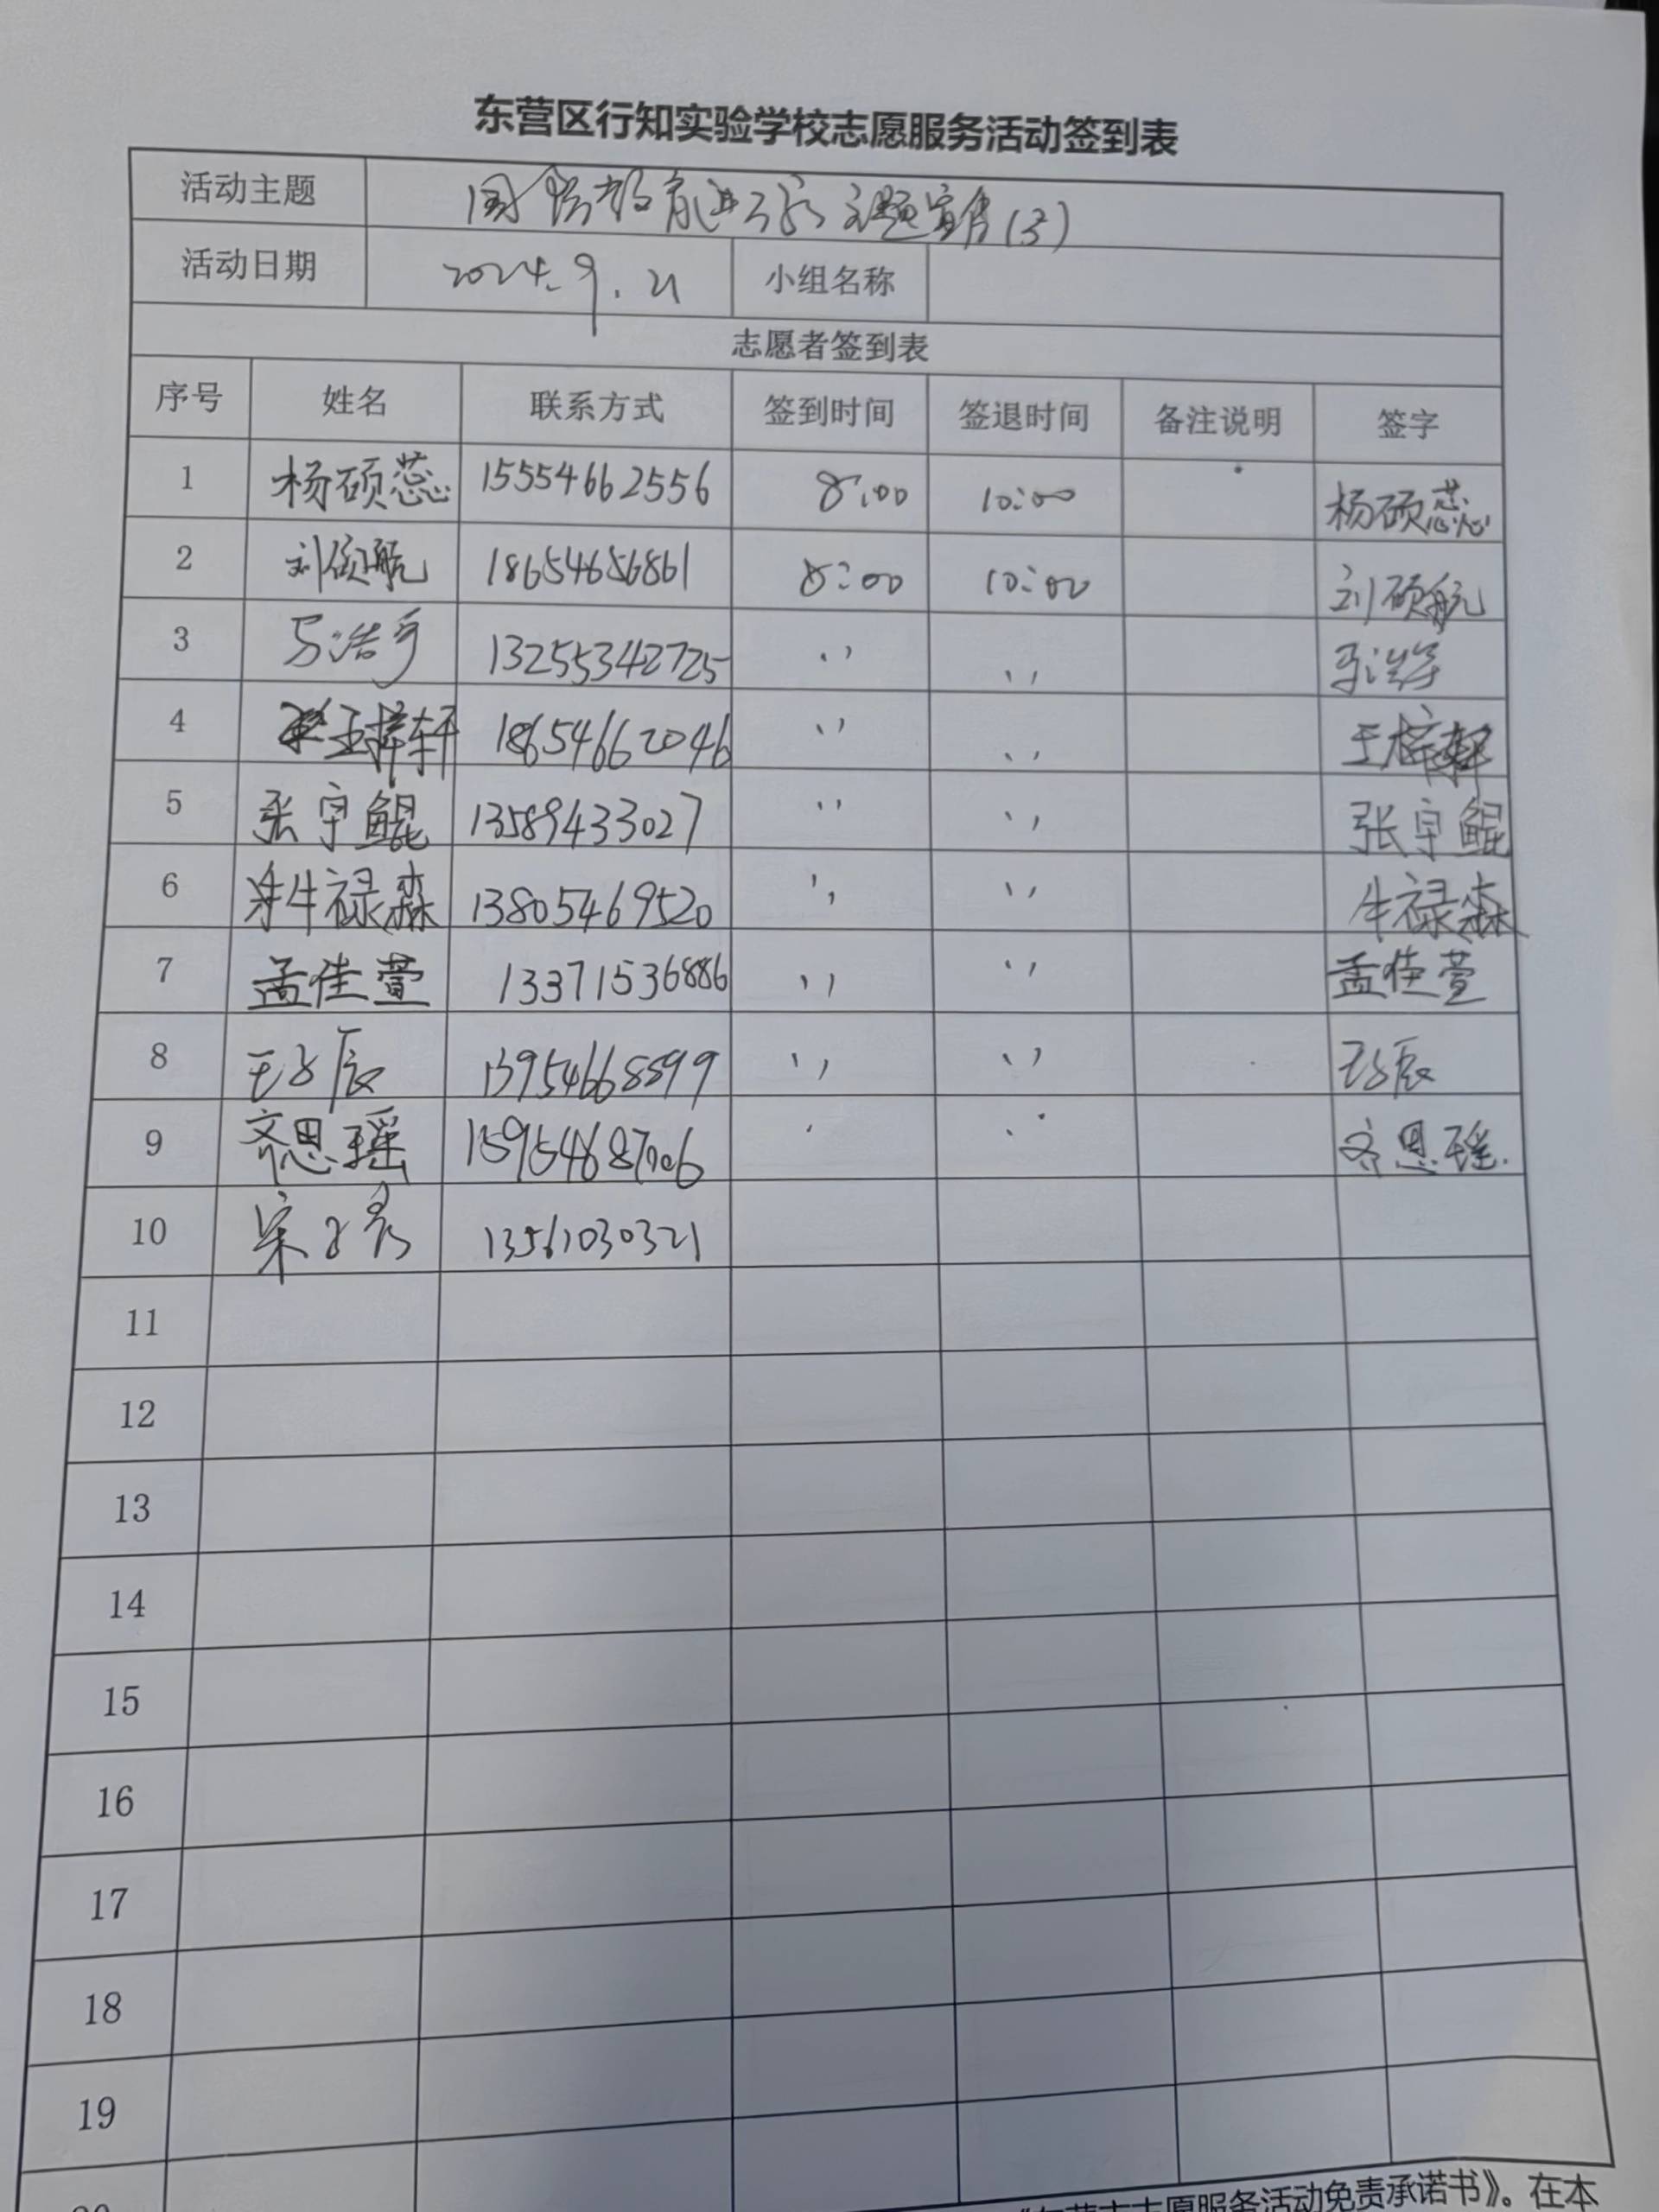 东营区行知实验学校志愿服务活动签到表
活动主题 国防教育进万家主题宣传(3)
活动日期 2024.9.21 小组名称
志愿者签到表
序号 姓名 联系方式 签到时间 签退时间 备注说明 签字
1 杨硕蕊 15554662556 8:00 10:00 杨硕蕊
2 刘硕航 18654656861 8:00 10:00 刘硕航
3 13255342725 〃 〃
4 王梓轩 18654662046 〃 〃 王梓轩
5 张宇鲲 13589433027 〃 〃 张宇鲲
6 牛禄森 13805469520 〃 〃 牛禄森
7 孟佳萱 13371536886 〃 〃 孟佳萱
8 王子辰 13954668899 〃 〃 王子辰
9 齐思瑶 15954687006 〃 〃 齐思瑶
10 宋子 13561030321
11
12
13
14
15
16
17
18
19
志愿服务活动免责承诺书》。在本